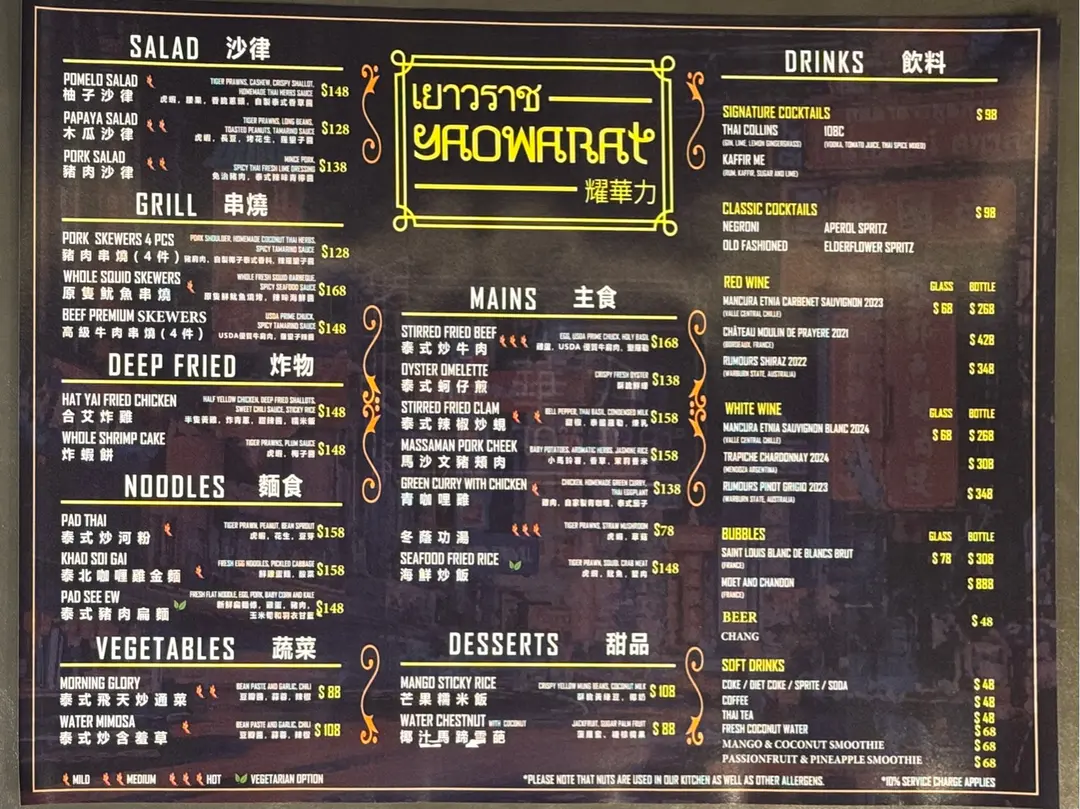 SALAD 沙律
POMELO SALAD
柚子沙律
TIGER PRAWNS, CASHEW, CRISPY SHALLOT,
HOMEMADE THAI HERBS SAUCE
虎蝦, 腰果, 香脆蔥頭, 自製泰式香草醬
$148
PAPAYA SALAD
木瓜沙律
TIGER PRAWNS, LONG BEANS,
TOASTED PEANUTS, TAMARIND SAUCE
虎蝦, 長豆, 烤花生, 羅望子醬
$128
PORK SALAD
豬肉沙律
MINCE PORK,
SPICY THAI FRESH LIME DRESSING
免治豬肉, 泰式辣味青檸醬
$138
GRILL 串燒
PORK SKEWERS 4 PCS
豬肉串燒(4件)
PORK SHOULDER, HOMEMADE COCONUT THAI HERBS,
SPICY TAMARIND SAUCE
豬肩肉, 自製椰子泰式香料, 辣羅望子醬
$128
WHOLE SQUID SKEWERS
原隻魷魚串燒
WHOLE FRESH SQUID BARBEQUE,
SPICY SEAFOOD SAUCE
原隻鮮魷魚燒烤, 辣味海鮮醬
$168
BEEF PREMIUM SKEWERS
高級牛肉串燒(4件)
USDA PRIME CHUCK,
SPICY TAMARIND SAUCE
USDA優質牛肩肉, 羅望子辣醬
$148
DEEP FRIED 炸物
HAT YAI FRIED CHICKEN
合艾炸雞
HALF YELLOW CHICKEN, DEEP FRIED SHALLOTS,
SWEET CHILI SAUCE, STICKY RICE
半隻黃雞, 炸青蔥, 甜辣醬, 糯米飯
$148
WHOLE SHRIMP CAKE
炸蝦餅
TIGER PRAWNS, PLUM SAUCE
虎蝦, 梅子醬
$148
NOODLES 麵食
PAD THAI
泰式炒河粉
TIGER PRAWN, PEANUT, BEAN SPROUT
虎蝦, 花生, 豆芽
$158
KHAO SOI GAI
泰北咖喱雞金麵
FRESH EGG NOODLES, PICKLED CABBAGE
鮮雞蛋麵, 酸菜
$158
PAD SEE EW
泰式豬肉扁麵
FRESH FLAT NOODLE, EGG, PORK, BABY CORN AND KALE
新鮮扁麵條, 雞蛋, 豬肉,
玉米筍和羽衣甘藍
$148
VEGETABLES 蔬菜
MORNING GLORY
泰式飛天炒通菜
BEAN PASTE AND GARLIC, CHILI
豆瓣醬, 蒜蓉, 辣椒
$88
WATER MIMOSA
泰式炒含羞草
BEAN PASTE AND GARLIC, CHILI
豆瓣醬, 蒜蓉, 辣椒
$108
MILD MEDIUM HOT VEGETARIAN OPTION
เยาวราช
YAOWARAT
耀華力
MAINS 主食
STIRRED FRIED BEEF
泰式炒牛肉
EGG, USDA PRIME CHUCK, HOLY BASIL
雞蛋, USDA優質牛肩肉, 聖羅勒
$168
OYSTER OMELETTE
泰式蚵仔煎
CRISPY FRESH OYSTER
酥脆鮮蠔
$138
STIRRED FRIED CLAM
泰式辣椒炒蜆
BELL PEPPER, THAI BASIL, CONDENSED MILK
甜椒, 泰國羅勒, 煉乳
$158
MASSAMAN PORK CHEEK
馬沙文豬頰肉
BABY POTATOES, AROMATIC HERBS, JASMINE RICE
小馬鈴薯, 香草, 茉莉香米
$158
GREEN CURRY WITH CHICKEN
青咖哩雞
CHICKEN, HOMEMADE GREEN CURRY,
THAI EGGPLANT
雞肉, 自家製青咖喱, 泰式茄子
$138
冬蔭功湯
TIGER PRAWNS, STRAW MUSHROOM
虎蝦, 草菇
$78
SEAFOOD FRIED RICE
海鮮炒飯
TIGER PRAWN, SQUID, CRAB MEAT
虎蝦, 魷魚, 蟹肉
$148
DESSERTS 甜品
MANGO STICKY RICE
芒果糯米飯
CRISPY YELLOW MUNG BEANS, COCONUT MILK
酥脆黃綠豆, 椰奶
$108
WATER CHESTNUT WITH COCONUT
椰汁馬蹄雪葩
JACKFRUIT, SUGAR PALM FRUIT
$88
*PLEASE NOTE THAT NUTS ARE USED IN OUR KITCHEN AS WELL AS OTHER ALLERGENS.
DRINKS 飲料
SIGNATURE COCKTAILS $98
THAI COLLINS
(GIN, LIME, LEMON GINGERGRASS)
IOBC
(VODKA, TOMATO JUICE, THAI SPICE MIXED)
KAFFIR ME
(RUM, KAFFIR, SUGAR AND LIME)
CLASSIC COCKTAILS $98
NEGRONI APEROL SPRITZ
OLD FASHIONED ELDERFLOWER SPRITZ
RED WINE GLASS BOTTLE
MANCURA ETNIA CARBENET SAUVIGNON 2023 $68 $268
(VALLE CENTRAL, CHILLE)
CHÂTEAU MOULIN DE PRAYERE 2021 $428
(BORDEAUX, FRANCE)
RUMOURS SHIRAZ 2022 $348
(WARBURN STATE, AUSTRALIA)
WHITE WINE GLASS BOTTLE
MANCURA ETNIA SAUVIGNON BLANC 2024 $68 $268
(VALLE CENTRAL CHILLE)
TRAPICHE CHARDONNAY 2024 $308
(MENDOZA ARGENTINA)
RUMOURS PINOT GRIGIO 2023 $348
(WARBURN STATE, AUSTRALIA)
BUBBLES GLASS BOTTLE
SAINT LOUIS BLANC DE BLANCS BRUT $78 $308
(FRANCE)
MOET AND CHANDON $888
(FRANCE)
BEER $48
CHANG
SOFT DRINKS
COKE / DIET COKE / SPRITE / SODA $48
COFFEE $48
THAI TEA $48
FRESH COCONUT WATER $68
MANGO & COCONUT SMOOTHIE $68
PASSIONFRUIT & PINEAPPLE SMOOTHIE $68
*10% SERVICE CHARGE APPLIES